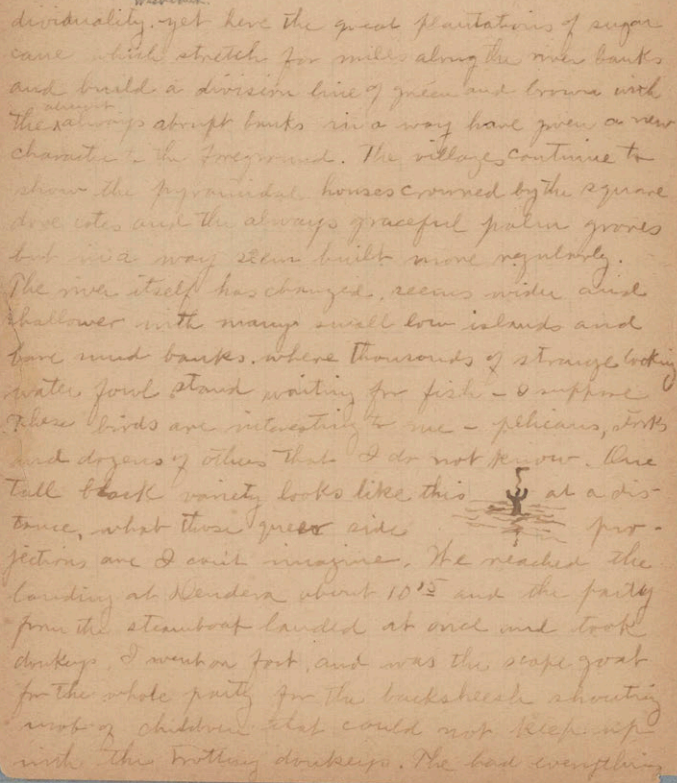 dividuality. yet here the great plantations of sugar
cane which stretch for miles along the river banks
and build a division line of green and brown with
the almost always abrupt banks in a way have given a new
character to the foreground. The villages continue to
show the pyramidal houses crowned by the square
dove cotes and the always graceful palm groves
but in a way seem built more regularly.
The river itself has changed, seems wider and
shallower with many small low islands and
bare mud banks. where thousands of strange looking
water fowl stand waiting for fish - I suppose
These birds are interesting to me - pelicans, storks
and dozens of others that I do not know. One
tall black variety looks like this at a dis-
tance, what those queer side pro-
jections are I can't imagine. We reached the
landing at Dendera about 10 15 and the party
from the steamboat landed at once and took
donkeys. I went on foot, and was the scape goat
for the whole party for the backsheesh shouting
mob of children that could not keep up
with the trotting donkeys. The had everything